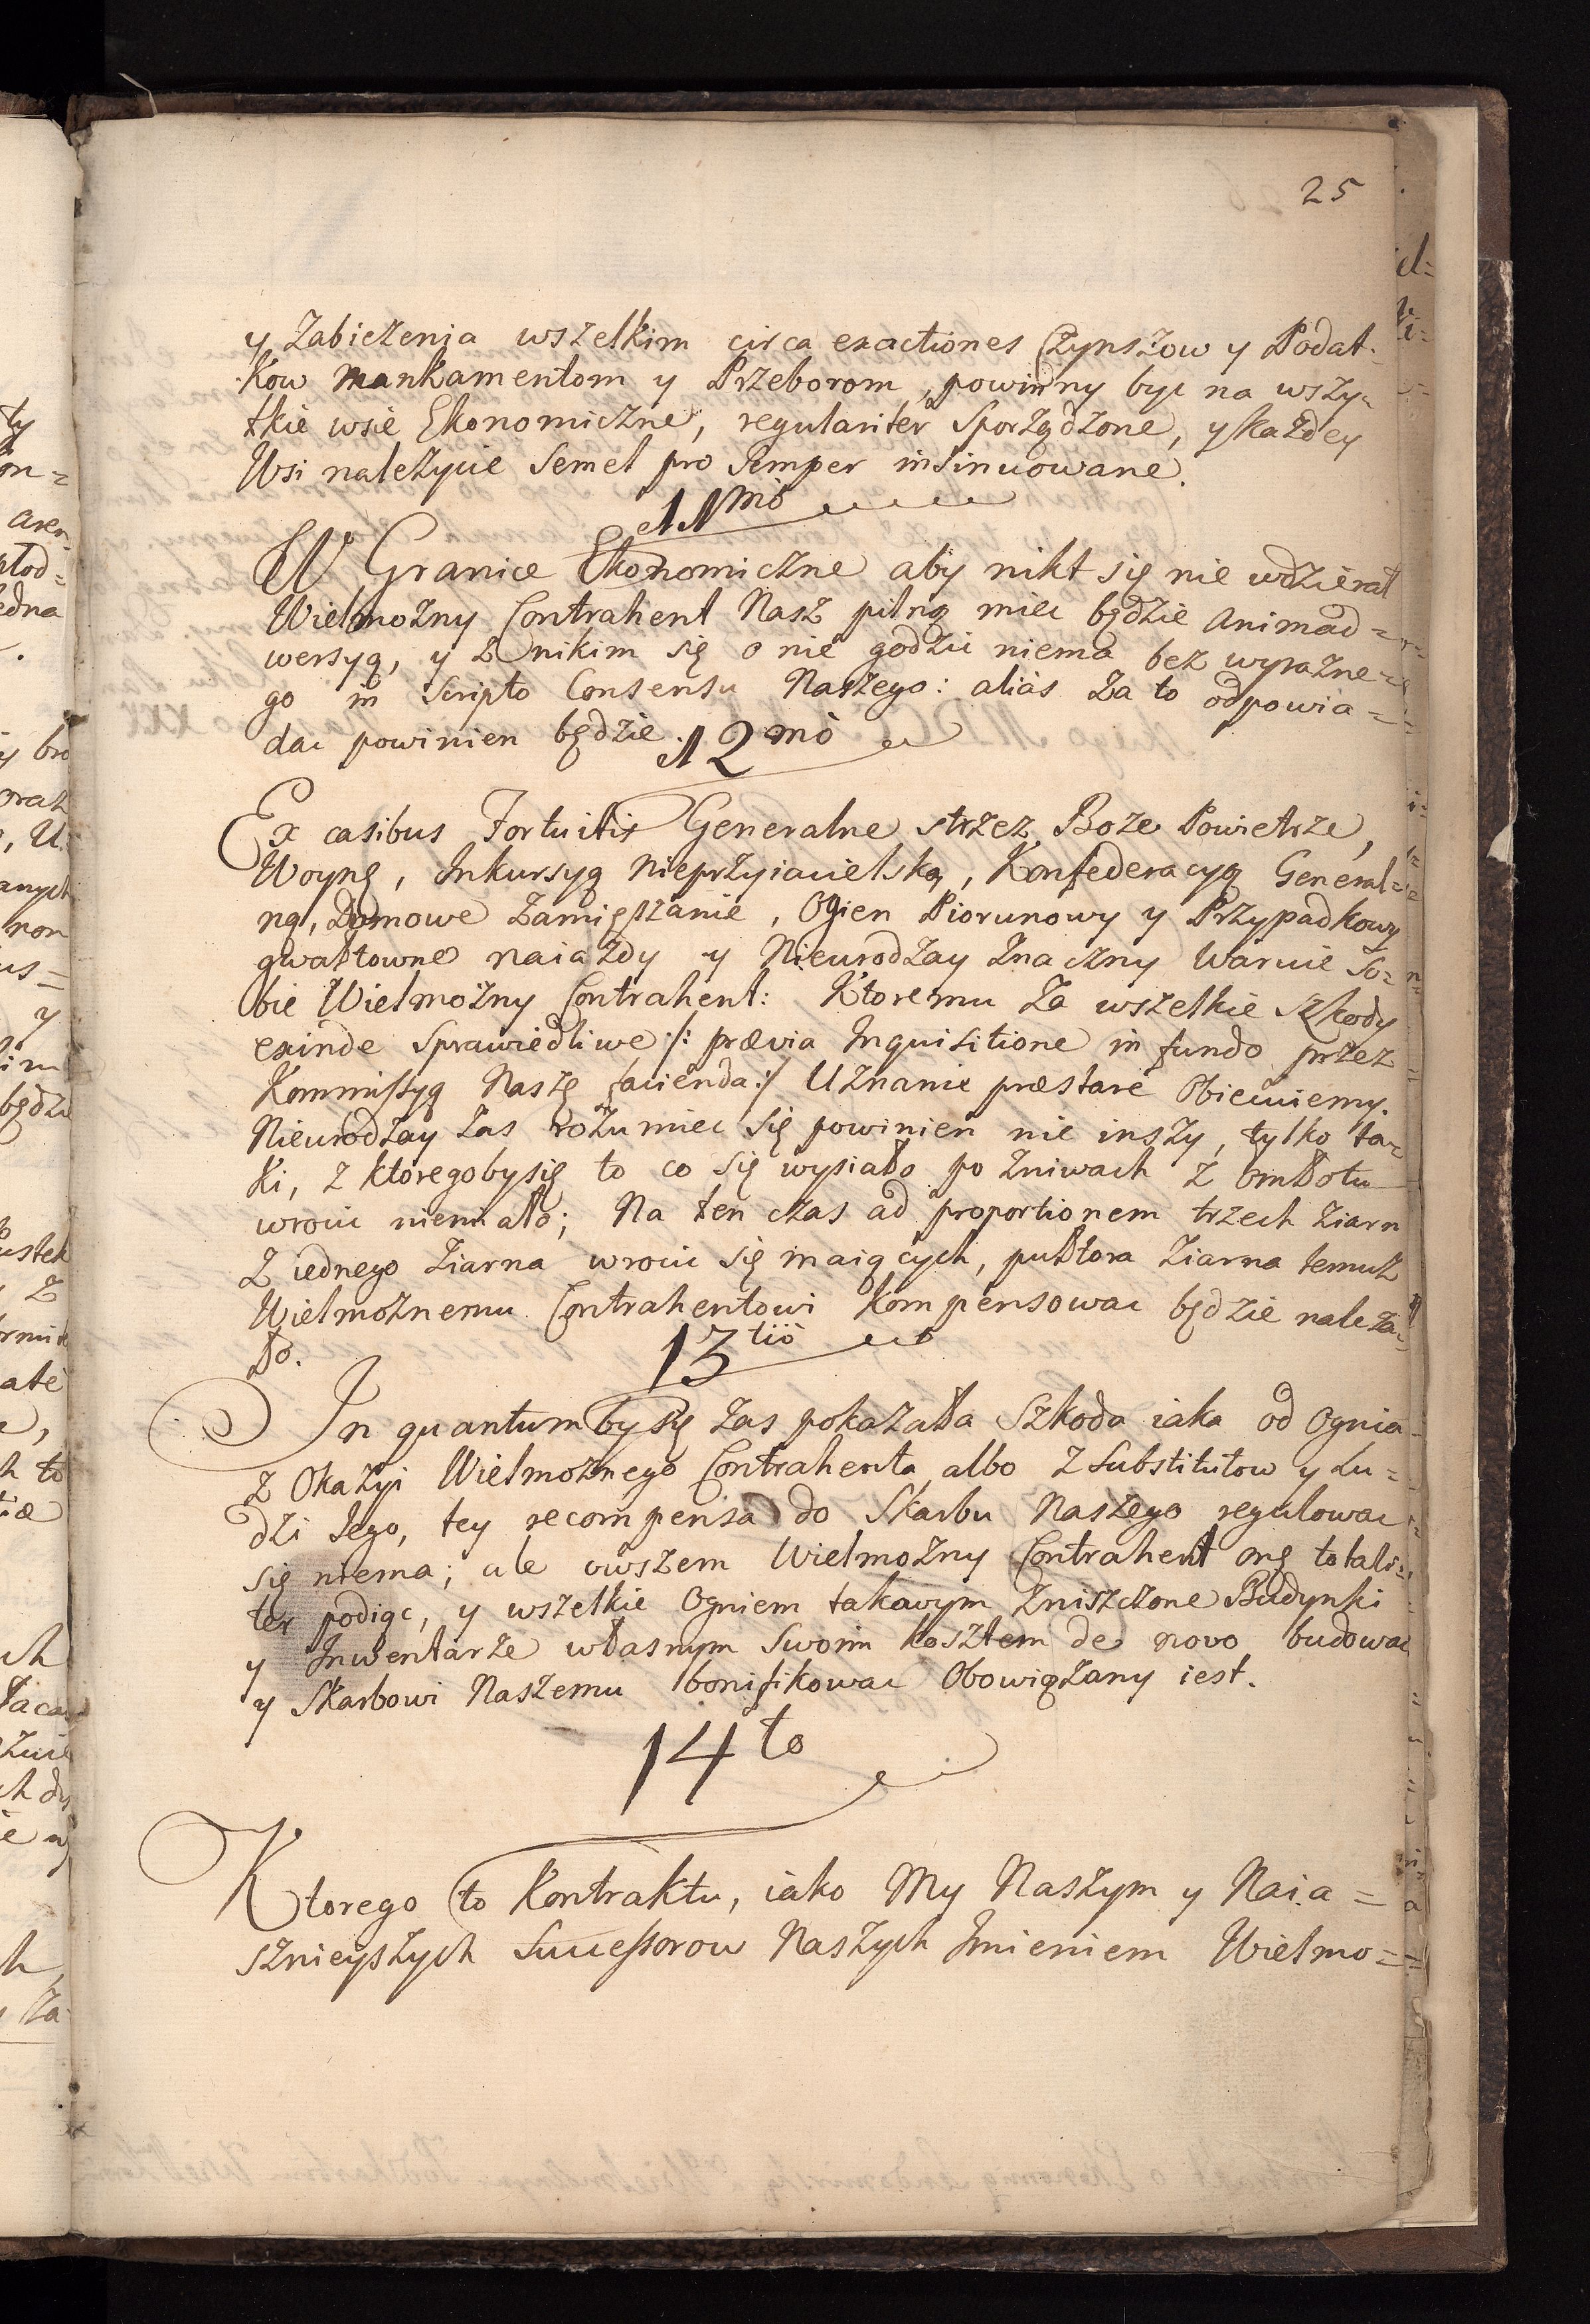 25
y Zabieżenia wszelkim circa exactiones Czynszow y Podat-
kow mankamentom y Przeborom, powinny byc na wszy-
tkie wsie Ekonomiczne, regulariter Sporządzone, y każdey
Wsi należycie Semel pro Semper insinuowane.
11mò
W Granice Ekonomiczne aby nikt się nie wdzierał
Wielmożny Contrahent Nasz pilną miec będzie animad=
wersyą, y z nikim się o nie godzic niema bez wyrazne=
go in Scripto Consensu Naszego: aliàs za to odpowia=
dac powinien będzie.
12mò
Ex casibus Fortuitis Generalne strzez Boze Powietrze,
Woynę, Inkursyą Nieprzyiacielską, Konfederacyą General=
ną, Domowe Zamięszanie, Ogien Piorunowy y Przypadkowy
gwałtowne naiazdy y Nieurodzay znaczny Waruie So=
bie Wielmożny Contrahent: Ktoremu za wszelkie szkody
exinde Sprawiedliwe /: prævia Inquisitione in fundo przez
Kommissyą Naszę facienda :/ Uznanie præstare Obiecuiemy.
Nieurodzay zas rozumiec się powinien nie inszy, tylko ta=
ki, z ktoregobysię to co się wysiało po żniwach z omłotu
wrocic niemiało; Na ten czas ad proportionem trzech ziarn
z iednego ziarna wrocic się maiących, pułtora ziarna temuż
Wielmożnemu Contrahentowi kompensowac będzie należa=
ło.
13tiò
In quantum by się zas pokazała Szkoda iaka od Ognia
z Okazyi Wielmożnego Contrahenta albo z Substitutow y Lu=
dzi Jego, tey recompensa do Skarbu Naszego regulowac
się niema; ale owszem Wielmożny Contrahent onę totali=
ter podiąc, y wszelkie Ogniem takowym zniszczone Budynki
y Inwentarze własnym Swoim kosztem de novo budowac
y Skarbowi Naszemu bonifikowac Obowiązany iest.
14to
Ktorego to Kontraktu, iako My Naszym y Naia=
sznieyszych Successorow Naszych Imieniem Wielmo=